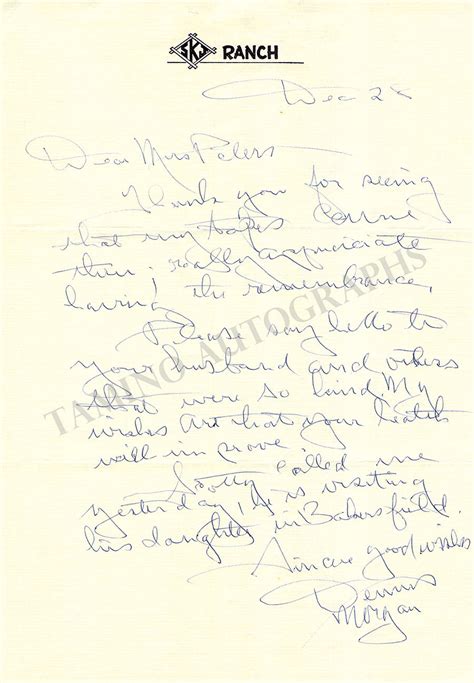 SKJ RANCH
Dec 28
Dear Mrs Peters
Thanks you for seeing
that my tapes came
thru. really appreciate
having the remembrance.
Please say hello to
your husband and others
that were so kind. My
wishes are that your health
will improve
Scotty called me
yesterday, he is visiting
his daughter in Bakersfield.
Sincere good wishes
Dennis
Morgan
TAMINO AUTOGRAPHS